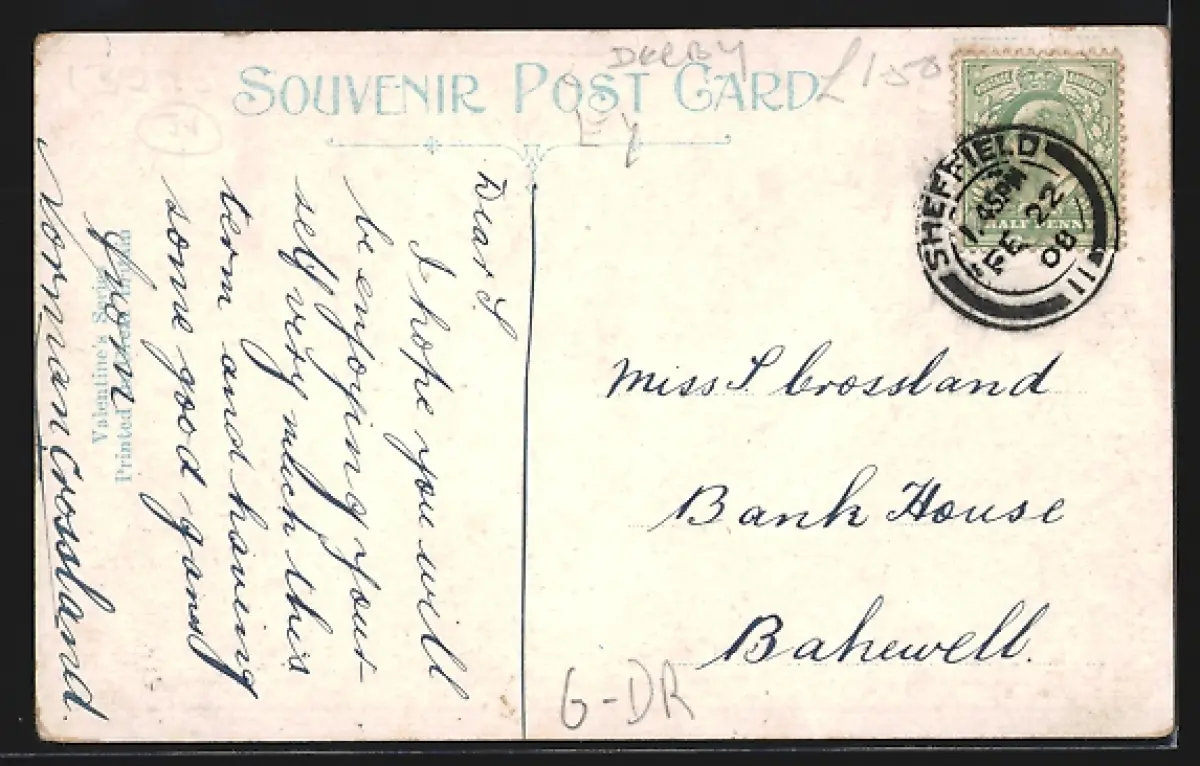 SOUVENIR POST CARD
DERBY
£150
EY
SHEFFIELD
1.45PM
FE 22
08
11
HALF PENNY
Dear S.
I hope you will
be enjoying your-
self very much this
term and having
some good games
from
Norman Crossland
Valentine's Series
Printed in
Miss S Crossland
Bank House
Bakewell.
G-DR